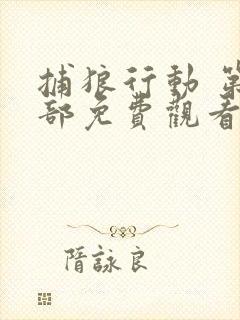 捕狼行動 第
部免費觀看
隋詠良